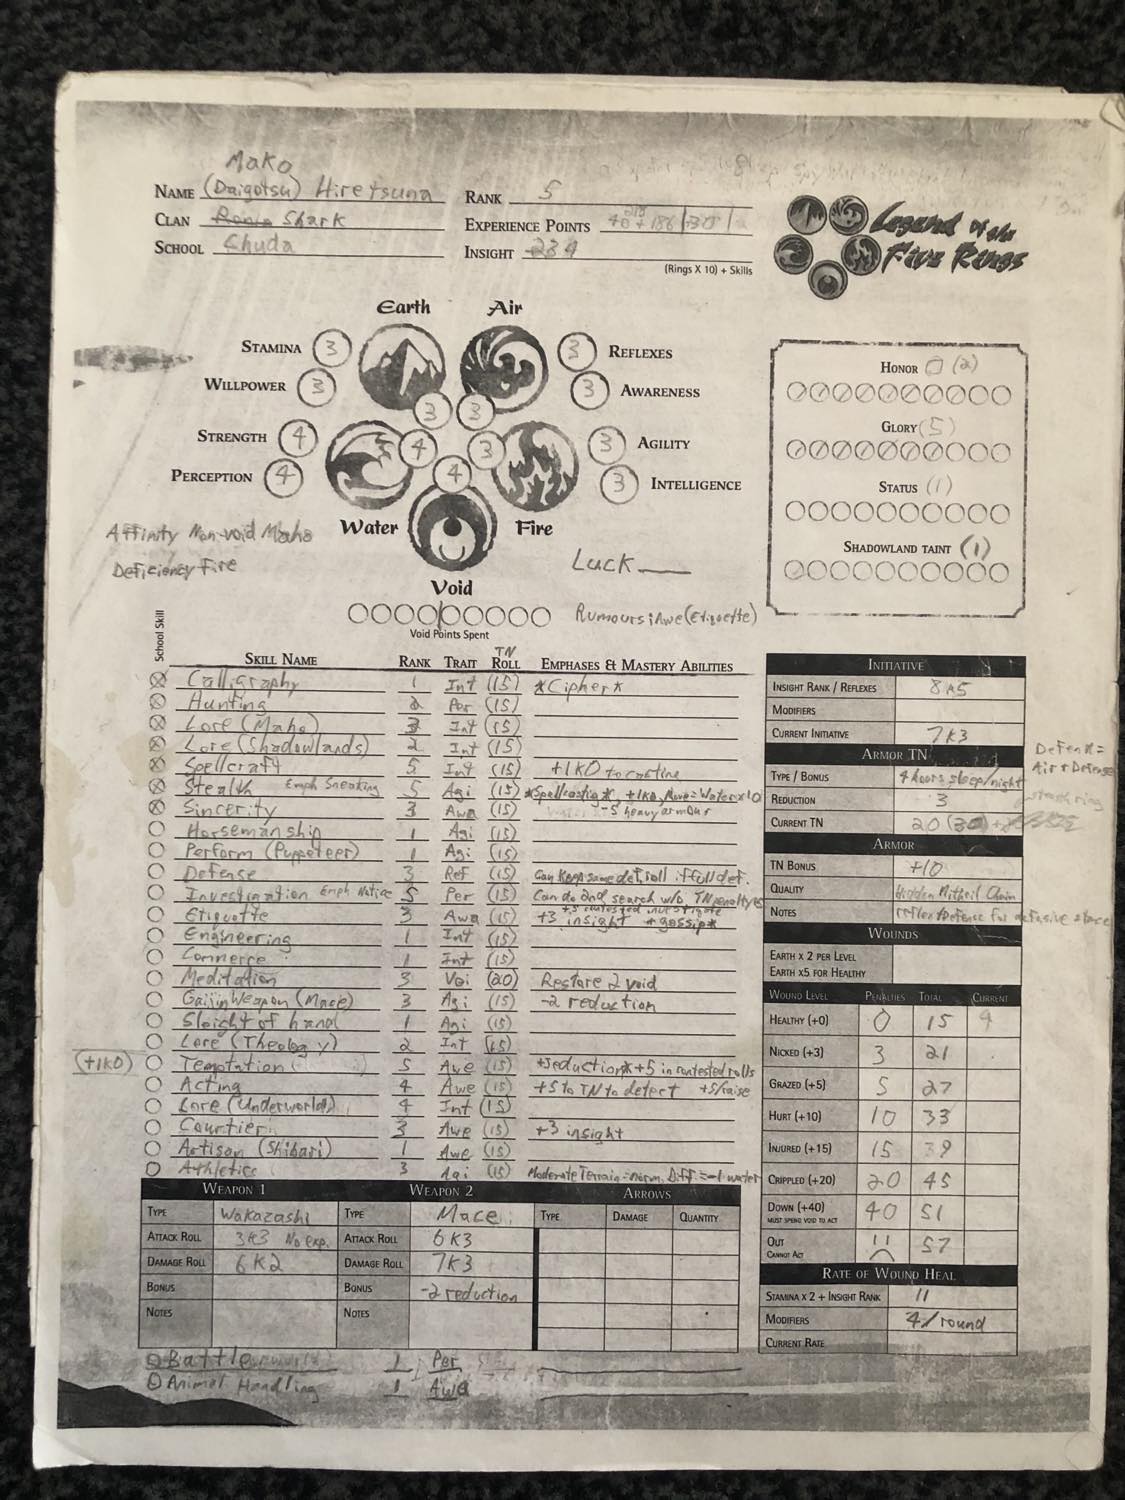 Mako
NAME (Daigotsu) Hiretsuna
CLAN Ronin Shark
SCHOOL Chuda
RANK 5
EXPERIENCE POINTS
INSIGHT 234
(RINGS X 10) + SKILLS
Legend of the
Five Rings
Earth Air
STAMINA 3
WILLPOWER 3
3 REFLEXES
3 AWARENESS
3 3
STRENGTH 4
PERCEPTION 4
4 3
4
3 AGILITY
3 INTELLIGENCE
Water Fire
Void
Affinity Non-void Maho
Deficiency Fire
Luck
VOID POINTS SPENT
Rumours: Awe (Etiquette)
HONOR 0 (2)
GLORY (5)
STATUS (1)
SHADOWLAND TAINT (1)
SCHOOL SKILL
SKILL NAME RANK TRAIT TN ROLL EMPHASES & MASTERY ABILITIES
Calligraphy 1 Int (15) *Cipher*
Hunting 2 Per (15)
Lore (Maho) 3 Int (15)
Lore (Shadowlands) 2 Int (15)
Spellcraft 5 Int (15) +1K0 to casting
Stealth Emph Sneaking 5 Agi (15) *Spellcasting*, +1K0, Move=Water x10
Sincerity 3 Awa (15) -5 heavy armour
Horsemanship 1 Agi (15)
Perform (Puppeteer) 1 Agi (15)
Defense 3 Ref (15) Can keep same def. roll if full def.
Investigation Emph Notice 5 Per (15) Can do 2nd search w/o TN penalty
Etiquette 3 Awa (15) +3 insight *gossip*
Engineering 1 Int (15)
Commerce 1 Int (15)
Meditation 3 Voi (20) Restore 2 void
Gaijin Weapon (Mace) 3 Agi (15) -2 reduction
Sleight of hand 1 Agi (15)
Lore (Theology) 2 Int (15)
(+1K0) Temptation 5 Awe (15) *Seduction* +5 in contested rolls
Acting 4 Awe (15) +5 to TN to detect +5/raise
Lore (Underworld) 4 Int (15)
Courtier 3 Awe (15) +3 insight
Artisan (Shibari) 1 Awe (15)
Athletics 3 Agi (15) Moderate Terrain = norm. Diff. = -1 water
INITIATIVE
INSIGHT RANK / REFLEXES 8K5
MODIFIERS
CURRENT INITIATIVE 7K3
ARMOR TN
Defense =
Air + Defense
TYPE / BONUS 4 hours sleep/night
REDUCTION 3
CURRENT TN 20 (30)
ARMOR
TN BONUS +10
QUALITY Hidden Mithril Chain
NOTES reflex+Defence for defensive stance
WOUNDS
EARTH X 2 PER LEVEL
EARTH X5 FOR HEALTHY
WOUND LEVEL PENALTIES TOTAL CURRENT
HEALTHY (+0) 0 15 9
NICKED (+3) 3 21
GRAZED (+5) 5 27
HURT (+10) 10 33
INJURED (+15) 15 39
CRIPPLED (+20) 20 45
DOWN (+40) 40 51
MUST SPEND VOID TO ACT
OUT 57
CANNOT ACT
RATE OF WOUND HEAL
STAMINA X 2 + INSIGHT RANK 11
MODIFIERS 4/round
CURRENT RATE
WEAPON 1 WEAPON 2 ARROWS
TYPE Wakazashi TYPE Mace TYPE DAMAGE QUANTITY
ATTACK ROLL 3K3 No exp. ATTACK ROLL 6K3
DAMAGE ROLL 6K2 DAMAGE ROLL 7K3
BONUS BONUS -2 reduction
NOTES NOTES
Battle 1 Per
Animal Handling 1 Awa